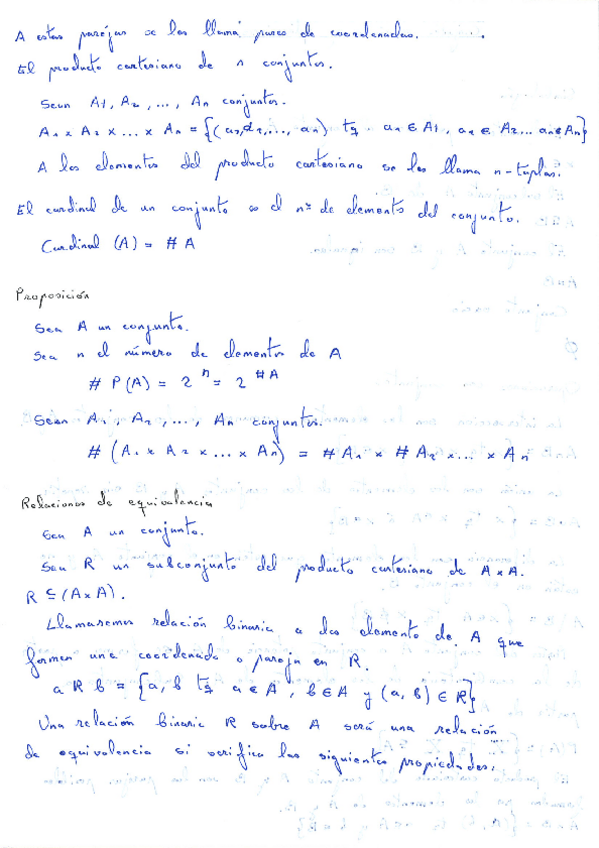 A estas parejas se les llama pares de coordenadas.
El producto cartesiano de n conjuntos.
Sean A1, A2, ..., An conjuntos.
A1 x A2 x ... x An = {(a1, a2, ..., an) tq. a1 ∈ A1, a2 ∈ A2 ... an ∈ An}
A los elementos del producto cartesiano se les llama n-tuplas.
El cardinal de un conjunto es el nº de elementos del conjunto.
Cardinal (A) = # A
Proposición
Sea A un conjunto.
Sea n el número de elementos de A
# P(A) = 2^n = 2^#A
Sean A1, A2, ..., An conjuntos.
# (A1 x A2 x ... x An) = # A1 x # A2 x ... x An
Relaciones de equivalencia
Sea A un conjunto.
Sea R un subconjunto del producto cartesiano de A x A.
R ⊆ (A x A).
Llamaremos relación binaria a dos elemento de A que
formen una coordenada o pareja en R.
a R b = {a, b tq a ∈ A, b ∈ A y (a, b) ∈ R}
Una relación binaria R sobre A será una relación
de equivalencia si verifica las siguientes propiedades: